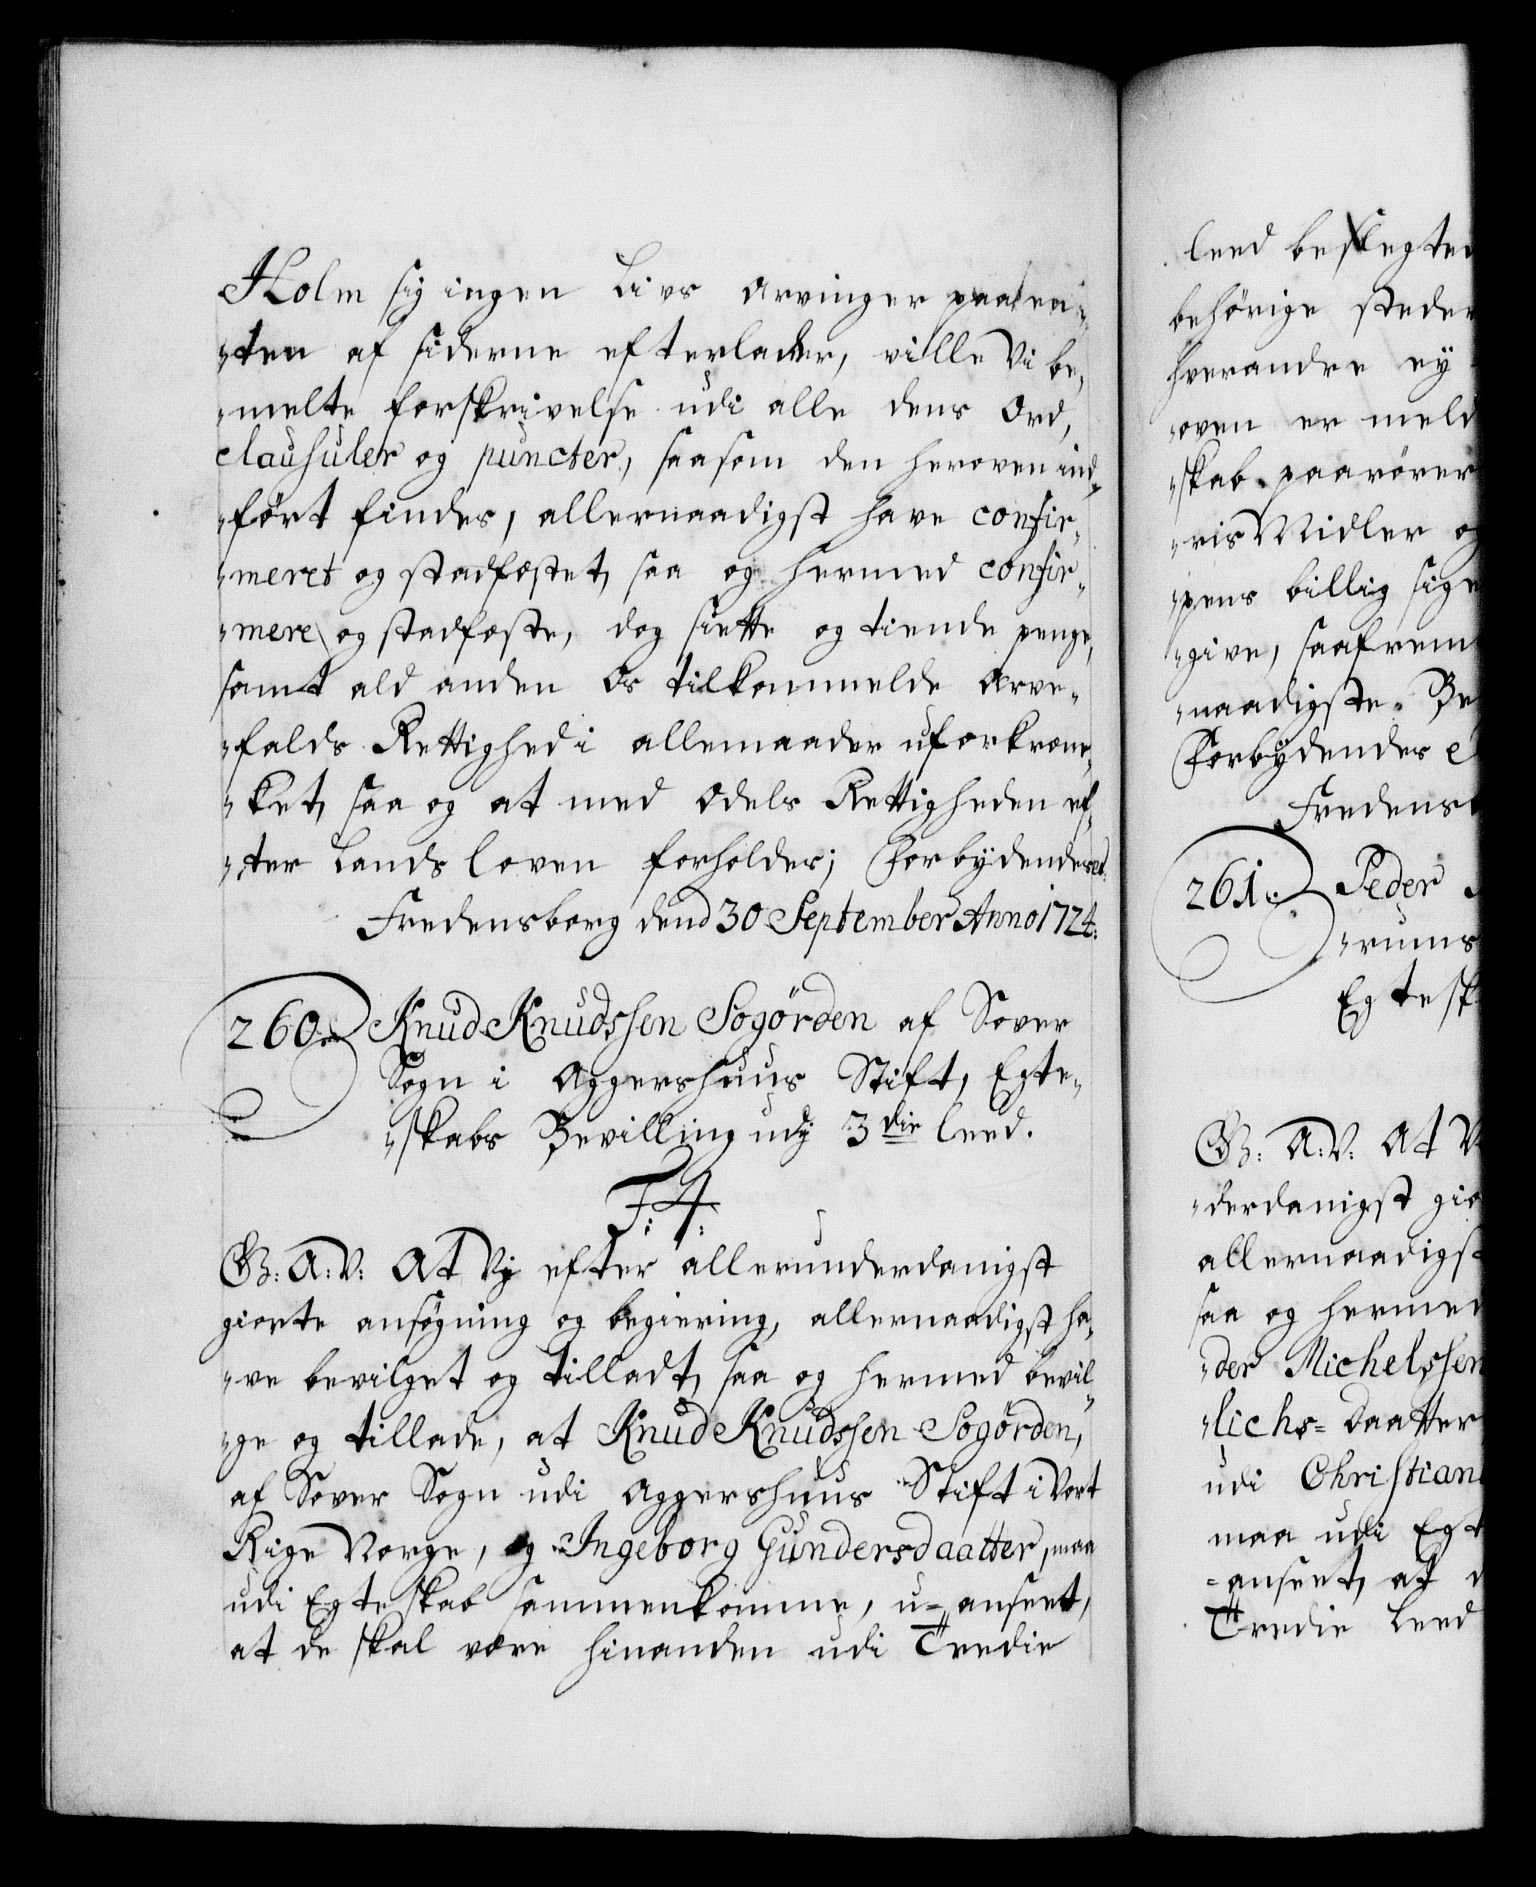 Holm sig ingen Livs Arvinger paa een¬
"ten af siderne efterlader, ville Vi be¬
"melte forskrivelse udi alle dens Ord,
clausuler og puncter, saasom den heroven ind¬
"ført findes, allernaadigst have confir¬
"meret og stadfæstet, saa og hermed confir¬
"mere og stadfæste, dog siette og tiende penge,
samt ald anden Os tilkommelde Arve¬
"falds Rettighed i allemaader uforkræn¬
"ket, saa og at med Odels Rettigheden ef¬
"ter Lands loven forholdes; Forbydendes etc.
Fredensborg dend 30 September Anno 1724.
260. Knud Knudssen Sogörden af Sover
Sogn i Aggershuus Stift, Egte¬
"skabs Bevilling udj 3die Leed.
F: 4.
G: A: V: At Vj efter allerunderdanigst
giorte ansøgning og begiering, allernaadigst ha¬
"ve bevilget og tilladt, saa og hermed bevil¬
"ge og tillade, at Knud Knudssen Sogörden,
af Sover Sogn udi Aggershuus Stift i Vort
Rige Norge, og Ingeborg Gundersdaatter, maa
udi Egteskab sammenkomme, u-anseet,
at de skal være hinanden udi Tredie
leed beslegted
behörige steder
hverandre ey
"oven er meld
"skab paarörer
"ris Midler og
"pens billig sige
"give, saafrem
"naadigste Be
Forbydendes e
Fredensb
261. Peder
"rums
Egtesk
G: A: V: At V
"derdanigst gio
allernaadigst
saa og hermed
"der Michelssen
"lichs-Daatter
udi Christian
maa udi Egt
-anseet, at d
Tredie Leed